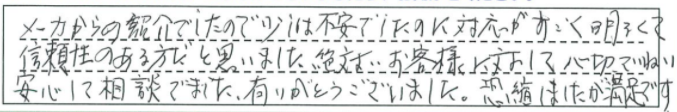 メーカからの紹介でしたので少しは不安でしたのに対応がすごく明るくて
信頼性のある方だと思いました、絶対お客様に対して心切でていねい
安心して相談できました、有りがとうございました。恐縮ましたが満足です